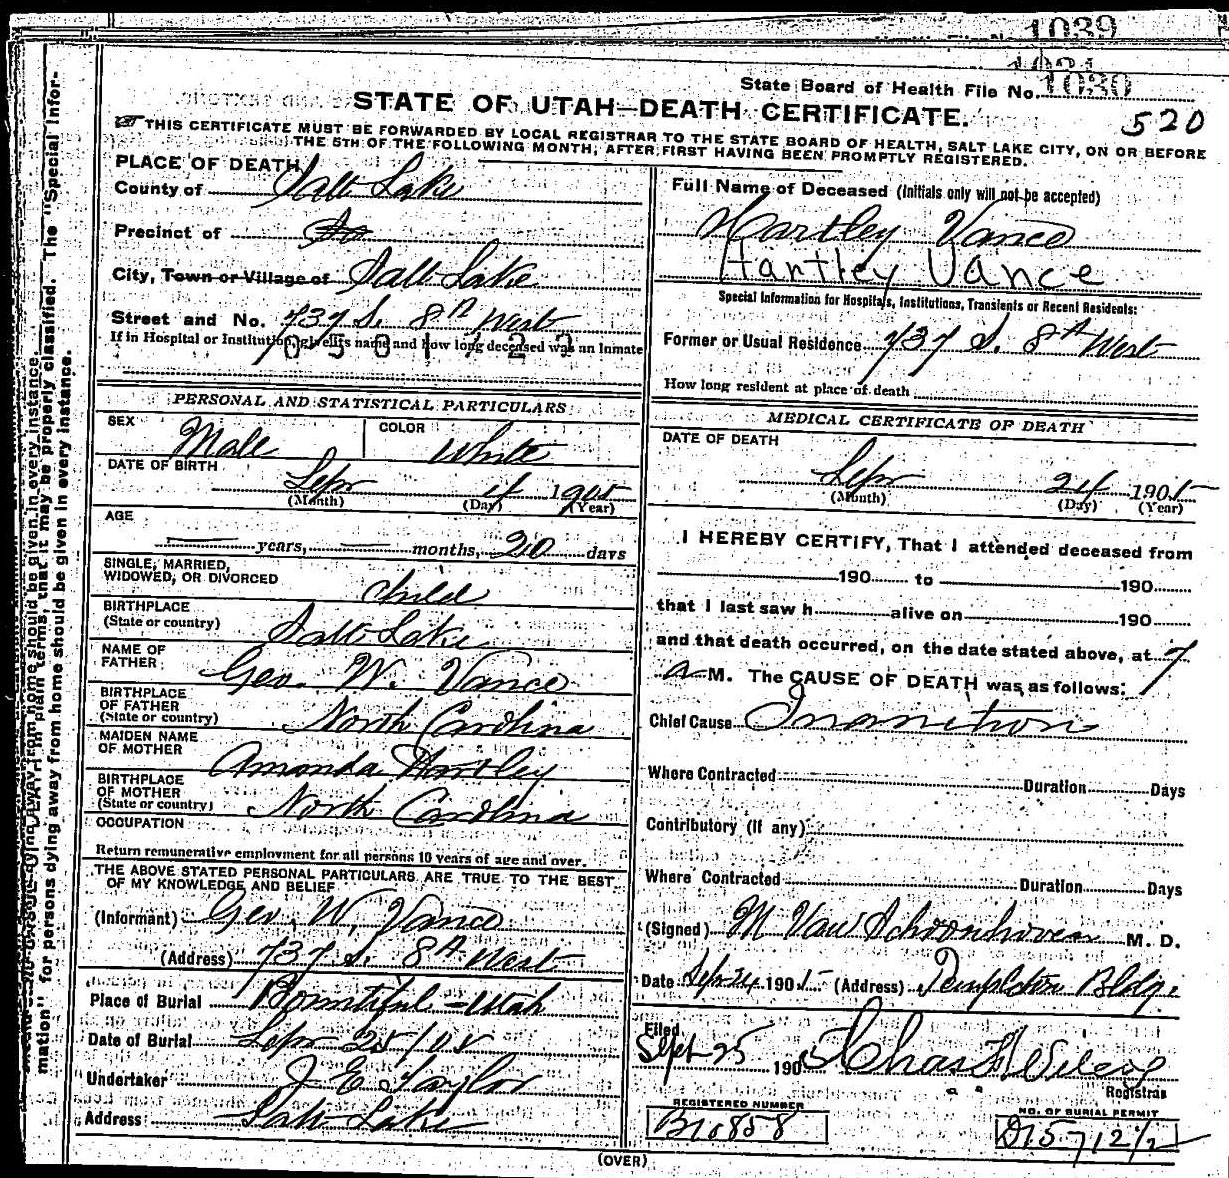 1039
State Board of Health File No. 1030
STATE OF UTAH—DEATH CERTIFICATE.
520
THIS CERTIFICATE MUST BE FORWARDED BY LOCAL REGISTRAR TO THE STATE BOARD OF HEALTH, SALT LAKE CITY, ON OR BEFORE
THE 5TH OF THE FOLLOWING MONTH, AFTER FIRST HAVING BEEN PROMPTLY REGISTERED.
PLACE OF DEATH
County of Salt Lake
Precinct of
City, Town or Village of Salt Lake
Street and No. 737 S. 8th West
If in Hospital or Institution, give its name and how long deceased was an Inmate
PERSONAL AND STATISTICAL PARTICULARS
SEX Male COLOR White
DATE OF BIRTH
Sepr 4 1905
(Month) (Day) (Year)
AGE
— years, — months, 20 days
SINGLE, MARRIED,
WIDOWED, OR DIVORCED child
BIRTHPLACE
(State or country) Salt Lake
NAME OF
FATHER Geo. W. Vance
BIRTHPLACE
OF FATHER
(State or country) North Carolina
MAIDEN NAME
OF MOTHER Amanda Hartley
BIRTHPLACE
OF MOTHER
(State or country) North Carolina
OCCUPATION
Return remunerative employment for all persons 10 years of age and over.
THE ABOVE STATED PERSONAL PARTICULARS ARE TRUE TO THE BEST
OF MY KNOWLEDGE AND BELIEF
(Informant) Geo. W. Vance
(Address) 737 S. 8th West
Place of Burial Bountiful - Utah
Date of Burial Sepr 25/05
Undertaker J E Taylor
Address: Salt Lake
Full Name of Deceased (Initials only will not be accepted)
Hartley Vance
Hartley Vance
Special Information for Hospitals, Institutions, Transients or Recent Residents:
Former or Usual Residence 737 S. 8th West
How long resident at place of death
MEDICAL CERTIFICATE OF DEATH
DATE OF DEATH
Sepr 24 1905
(Month) (Day) (Year)
I HEREBY CERTIFY, That I attended deceased from
190 to 190
that I last saw h alive on 190
and that death occurred, on the date stated above, at 7
a M. The CAUSE OF DEATH was as follows:
Chief Cause Inanition
Where Contracted Duration Days
Contributory (if any)
Where Contracted Duration Days
(Signed) M Van Schoonhoven M. D.
Date Sepr 24 1905 (Address) Templeton Bldg.
Filed
Sept 25 1905 Chas
Registrar
REGISTERED NUMBER
B10858
NO. OF BURIAL PERMIT
D15712 1/2
(OVER)
The "Special Infor-
mation" for persons dying away from home should be given in every instance.